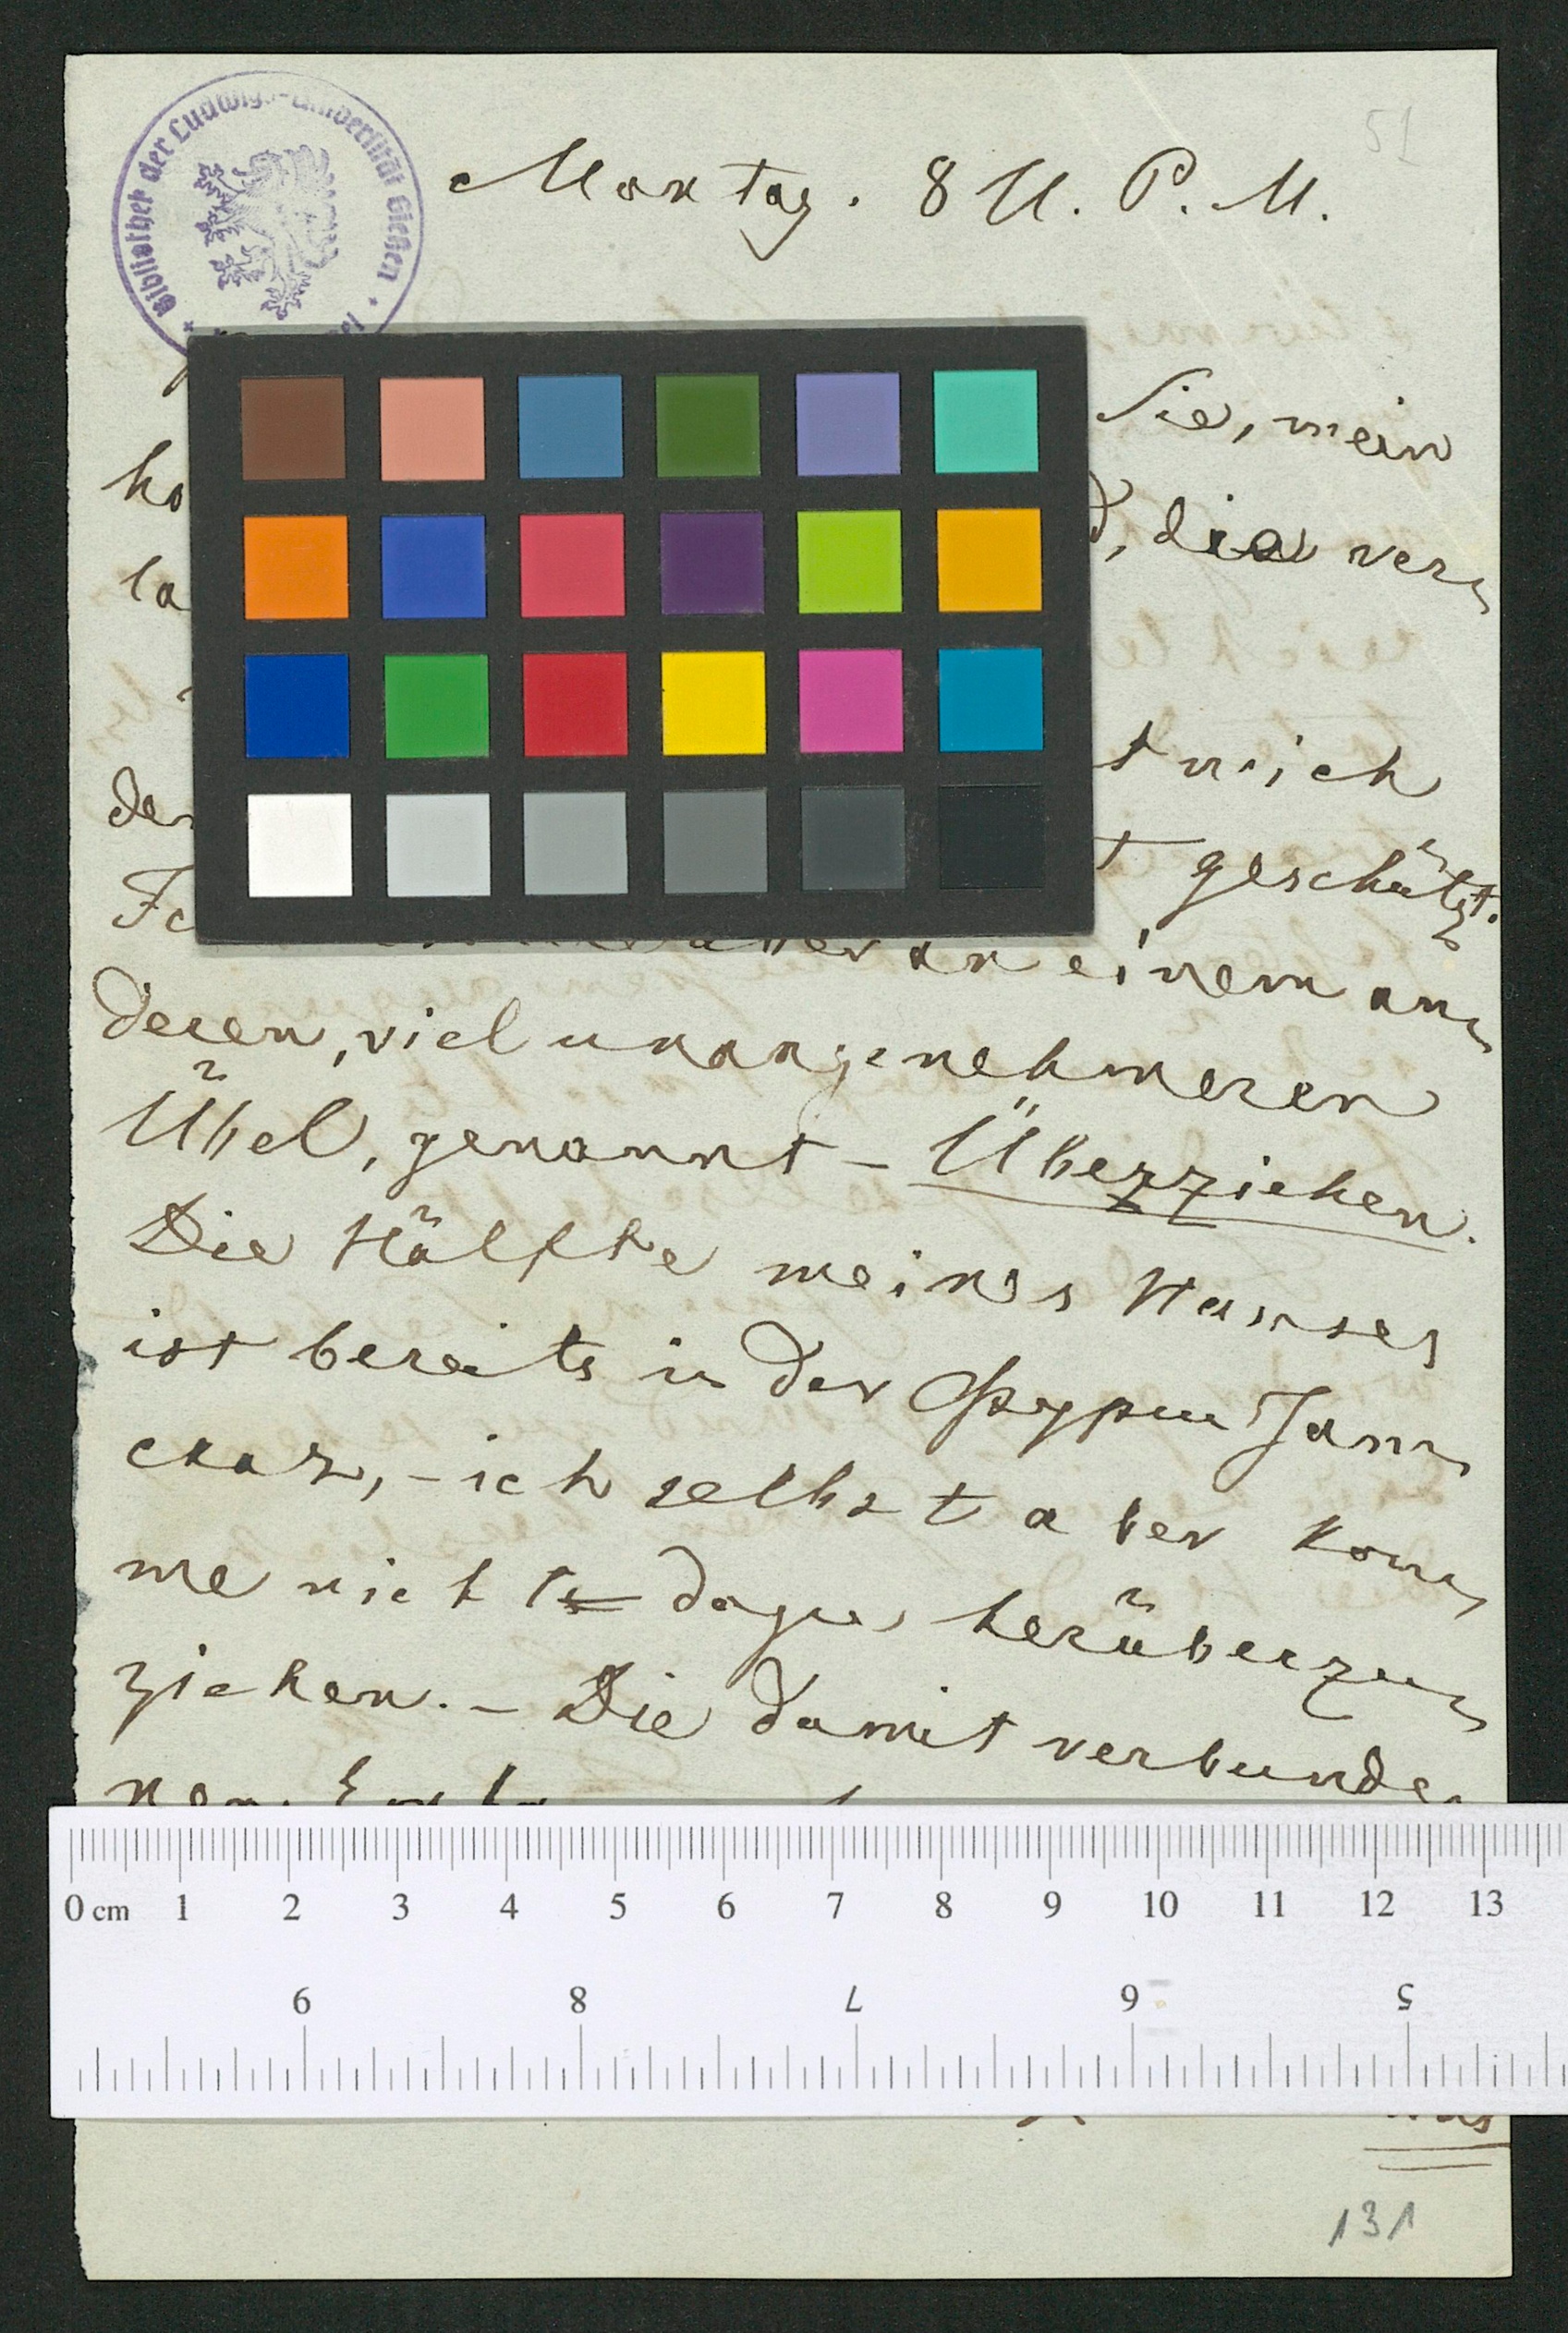 51
Bibliothek der Ludwigs-Universität Gießen
Montag. 8 U. P. M.
Sie, mein
ho
la , die ver⸗
t mich
der t geschützt.
an einem an⸗
deren, viel unangenehmeren
Übel, genannt – Überziehen.
Die Hälfte meines Hauses
ist bereits in der
ich selbst aber kom⸗
me nicht dazu herüberzu⸗
ziehen. – Die damit verbunde
0 cm 1 2 3 4 5 6 7 8 9 10 11 12 13
9 8 7 6 5
131